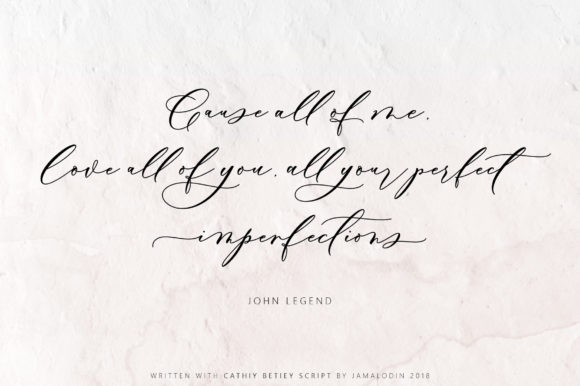 Cause all of me.
love all of you. all your perfect
imperfections
JOHN LEGEND
WRITTEN WITH CATHIY BETIEY SCRIPT BY JAMALODIN 2018